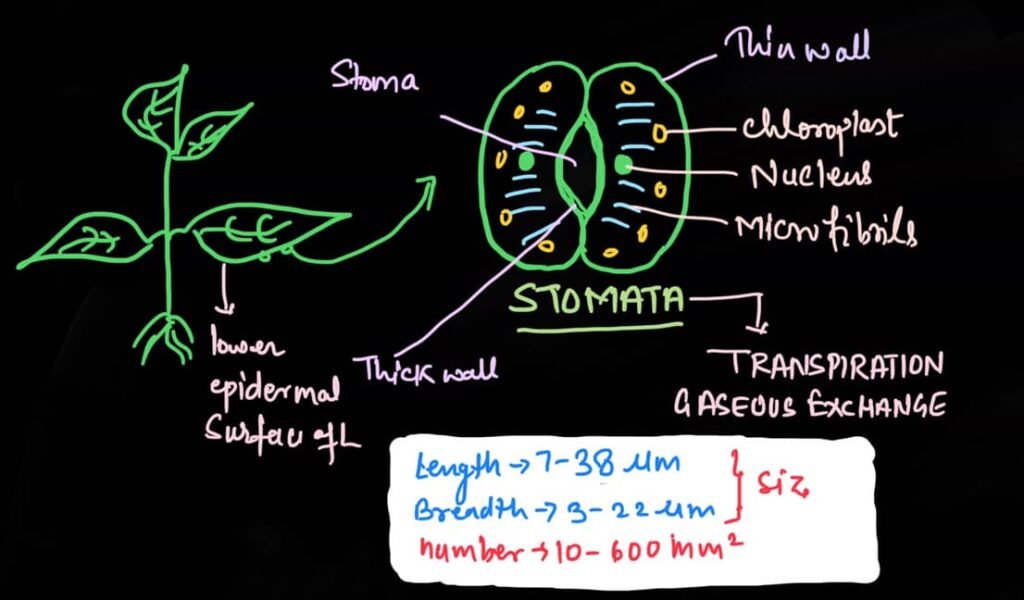 Stoma
Thin wall
chloroplast
Nucleus
Microfibrils
STOMATA
lower
epidermal
Surface of L
Thick wall
TRANSPIRATION
GASEOUS EXCHANGE
Length → 7-38 μm
Breadth → 3-22 μm
Siz
number → 10-600 mm²